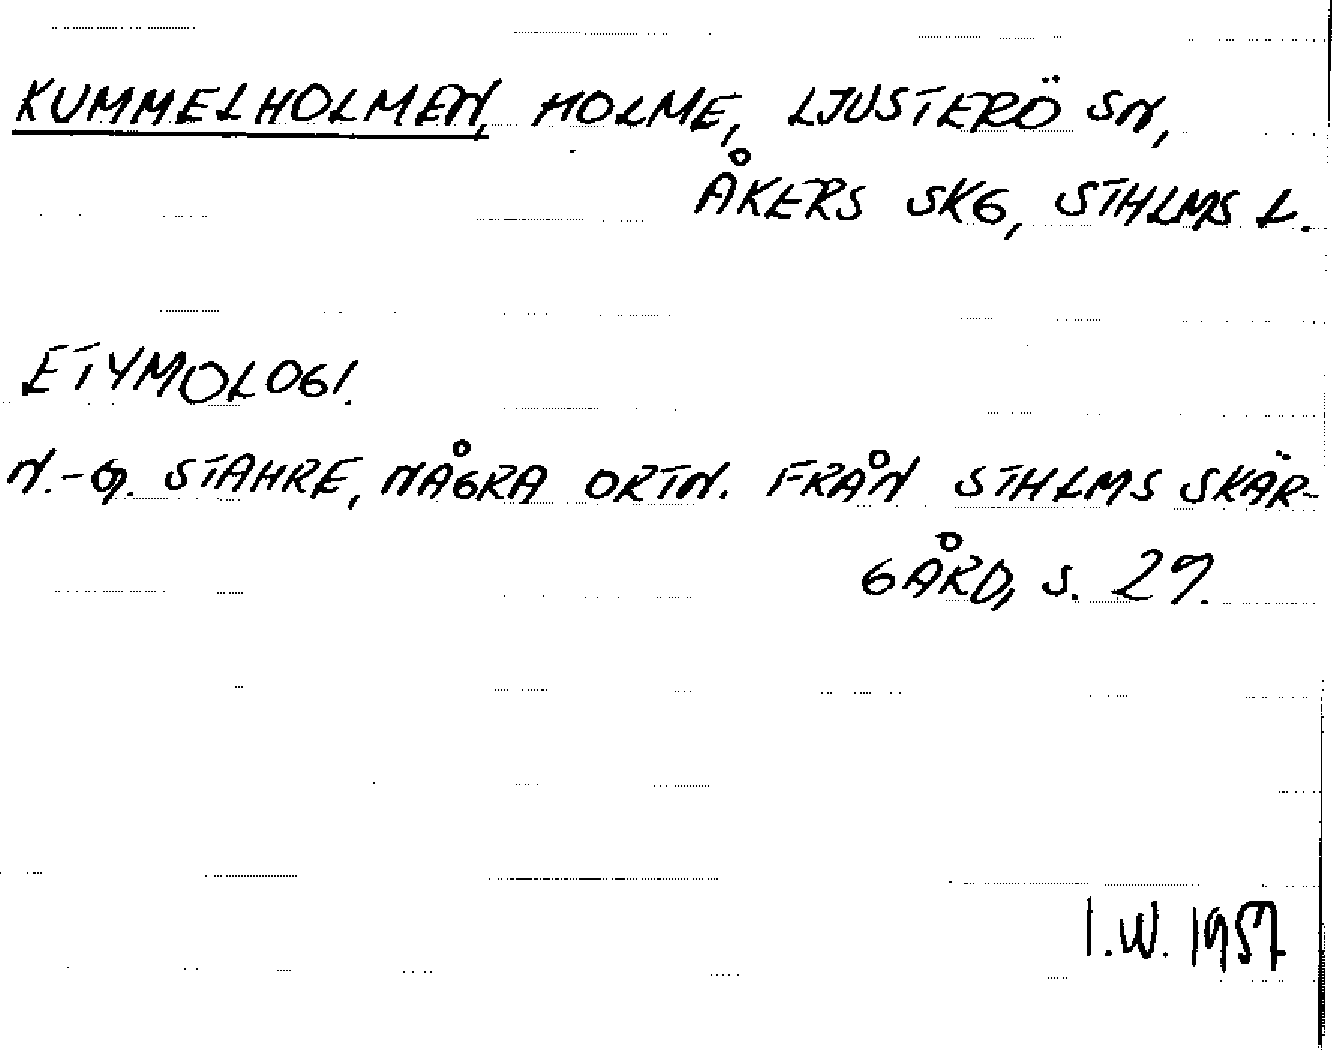 KUMMELHOLMEN, HOLME, LJUSTERÖ SN,
ÅKERS SKG, STHLMS L.
ETYMOLOGI.
N.-G. STAHRE, NÅGRA ORTN. FRÅN STHLMS SKÄR-
GÅRD, S. 27.
I.W. 1957